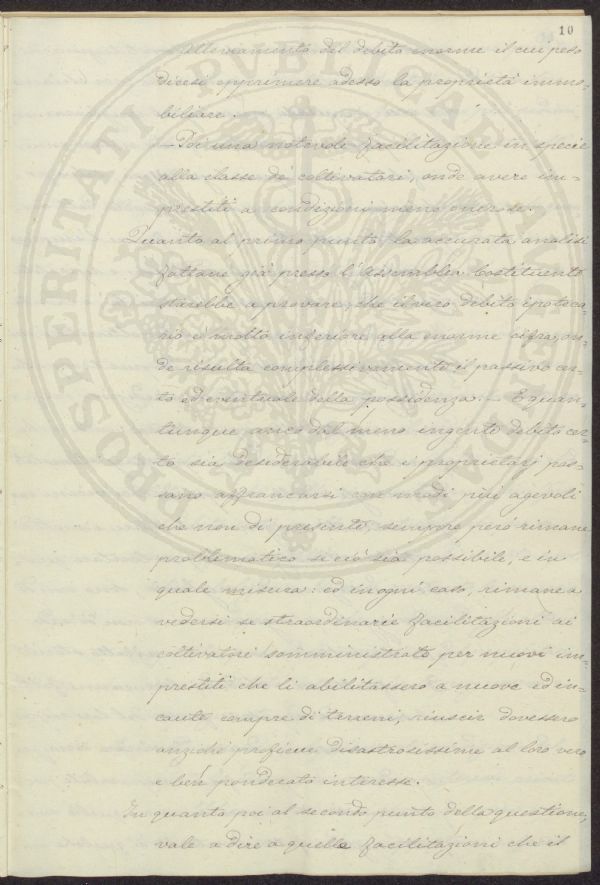 10
— Allevamento del debito enorme il cui peso
dicesi opprimere adesso la proprietà immo-
biliare.
— Poi una notevole facilitazione in specie
alla classe de' coltivatori, onde avere im-
prestiti a condizioni meno onerose.
Quanto al primo punto, la accurata analisi
fattane già presso l'Assemblea Costituente
starebbe a provare, che il vero debito ipoteca-
rio è molto inferiore alla enorme cifra, on-
de risulta complessivamente il passivo cer-
to ed eventuale della possidenza. — E quan-
tunque anco dal meno ingente debito cer-
to sia desiderabile che i proprietarj pos-
sano affrancarsi con modi più agevoli
che non di presente, sempre però rimane
problematico se ciò sia possibile, e in
quale misura: ed in ogni caso, rimane a
vedersi se straordinarie facilitazioni ai
coltivatori somministrate per nuovi im-
prestiti che li abilitassero a nuove ed in-
caute compre di terreni, riuscir dovessero
anzichè proficue disastrosissime al loro vero
e ben ponderato interesse.
In quanto poi al secondo punto della questione,
vale a dire a quelle facilitazioni che il
PROSPERITATI PVBLICAE AVGENDAE